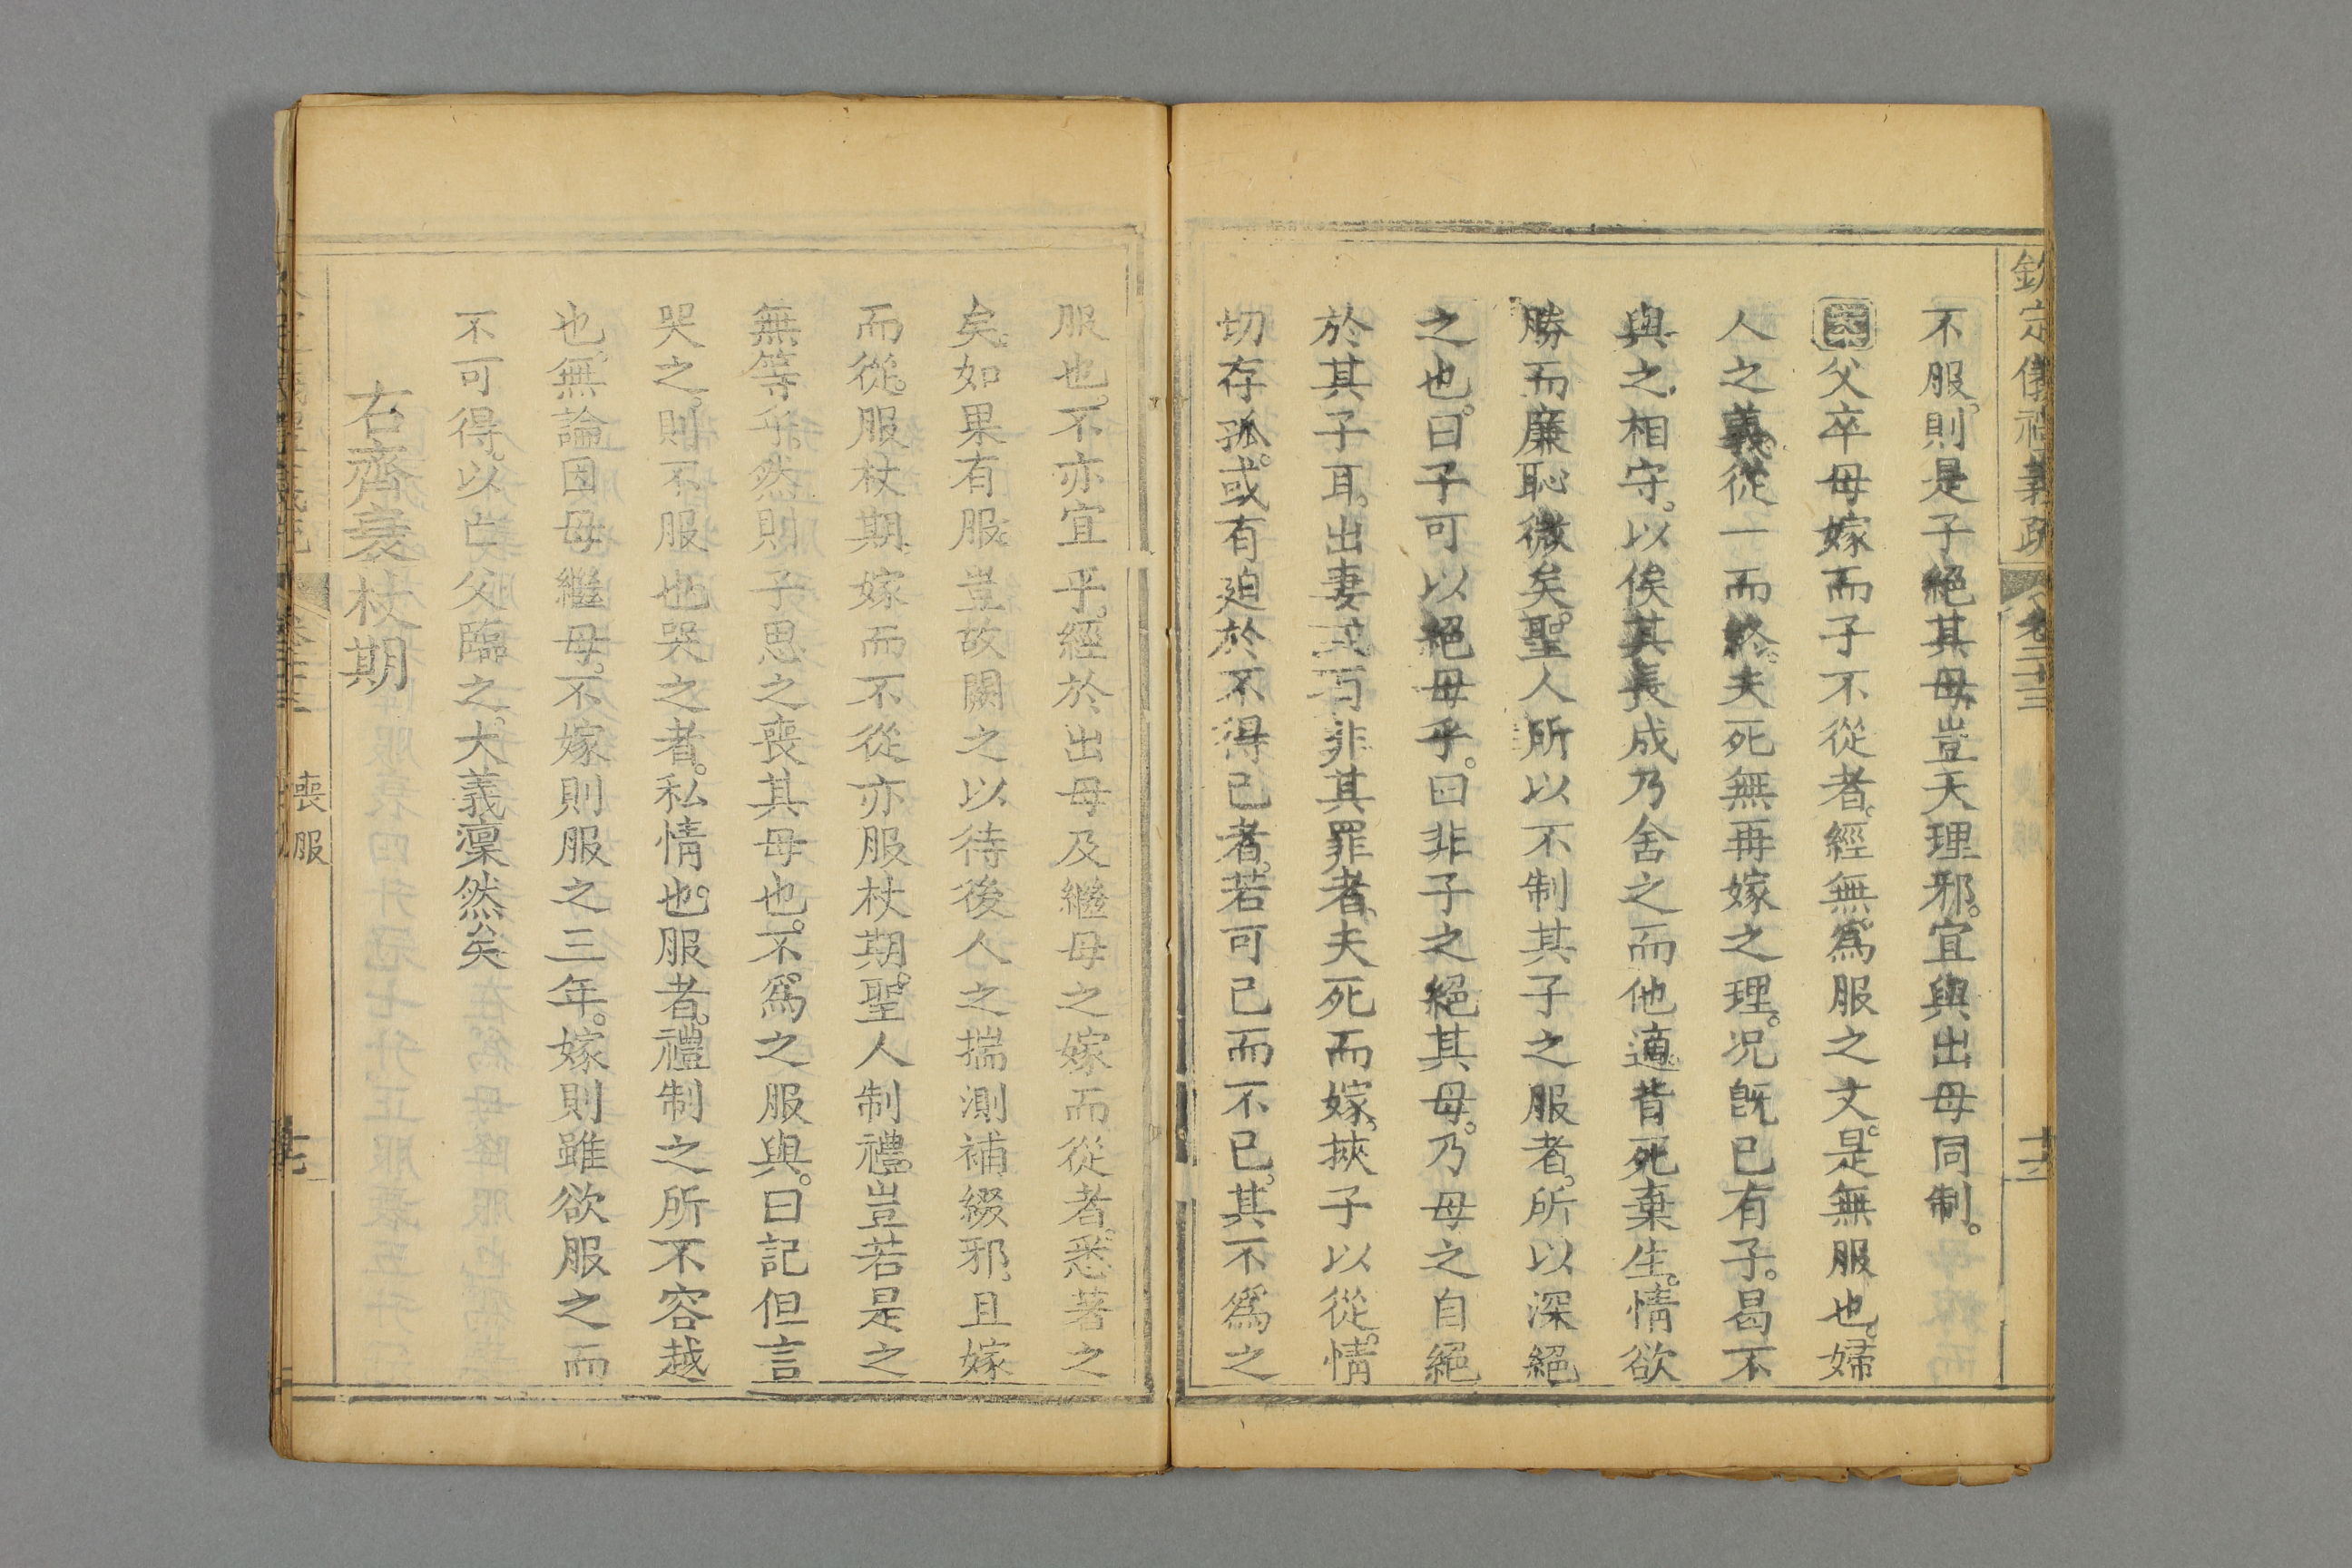 欽定儀禮義疏 卷二十三
不服。則是子絕其母。豈天理邪。宜與出母同制。
案父卒母嫁而子不從者。經無爲服之文。是無服也。婦
人之義。從一而終。夫死無再嫁之理。况旣已有子。曷不
與之相守。以俟其長成乃舍之而他適。背死棄生。情欲
勝而廉恥微矣。聖人所以不制其子之服者。所以深絕
之也。曰子可以絕母乎。曰非子之絕其母。乃母之自絕
於其子耳。出妻或有非其罪者。夫死而嫁。挾子以從。情
切存孤。或有迫於不得已者。若可已而不已。其不爲之
服也。不亦宜乎。經於出母及繼母之嫁而從者。悉著之
矣。如果有服。豈故闕之以待後人之揣測補綴邪。且嫁
而從。服杖期。嫁而不從亦服杖期。聖人制禮。豈若是之
無等乎。然則子思之喪其母也。不爲之服與。曰記但言
哭之。則不服也。哭之者。私情也。服者。禮制之所不容越
也。無論因母繼母。不嫁則服之三年。嫁則雖欲服之而
不可得。以亡父臨之。大義凜然矣
右齊衰杖期
喪服